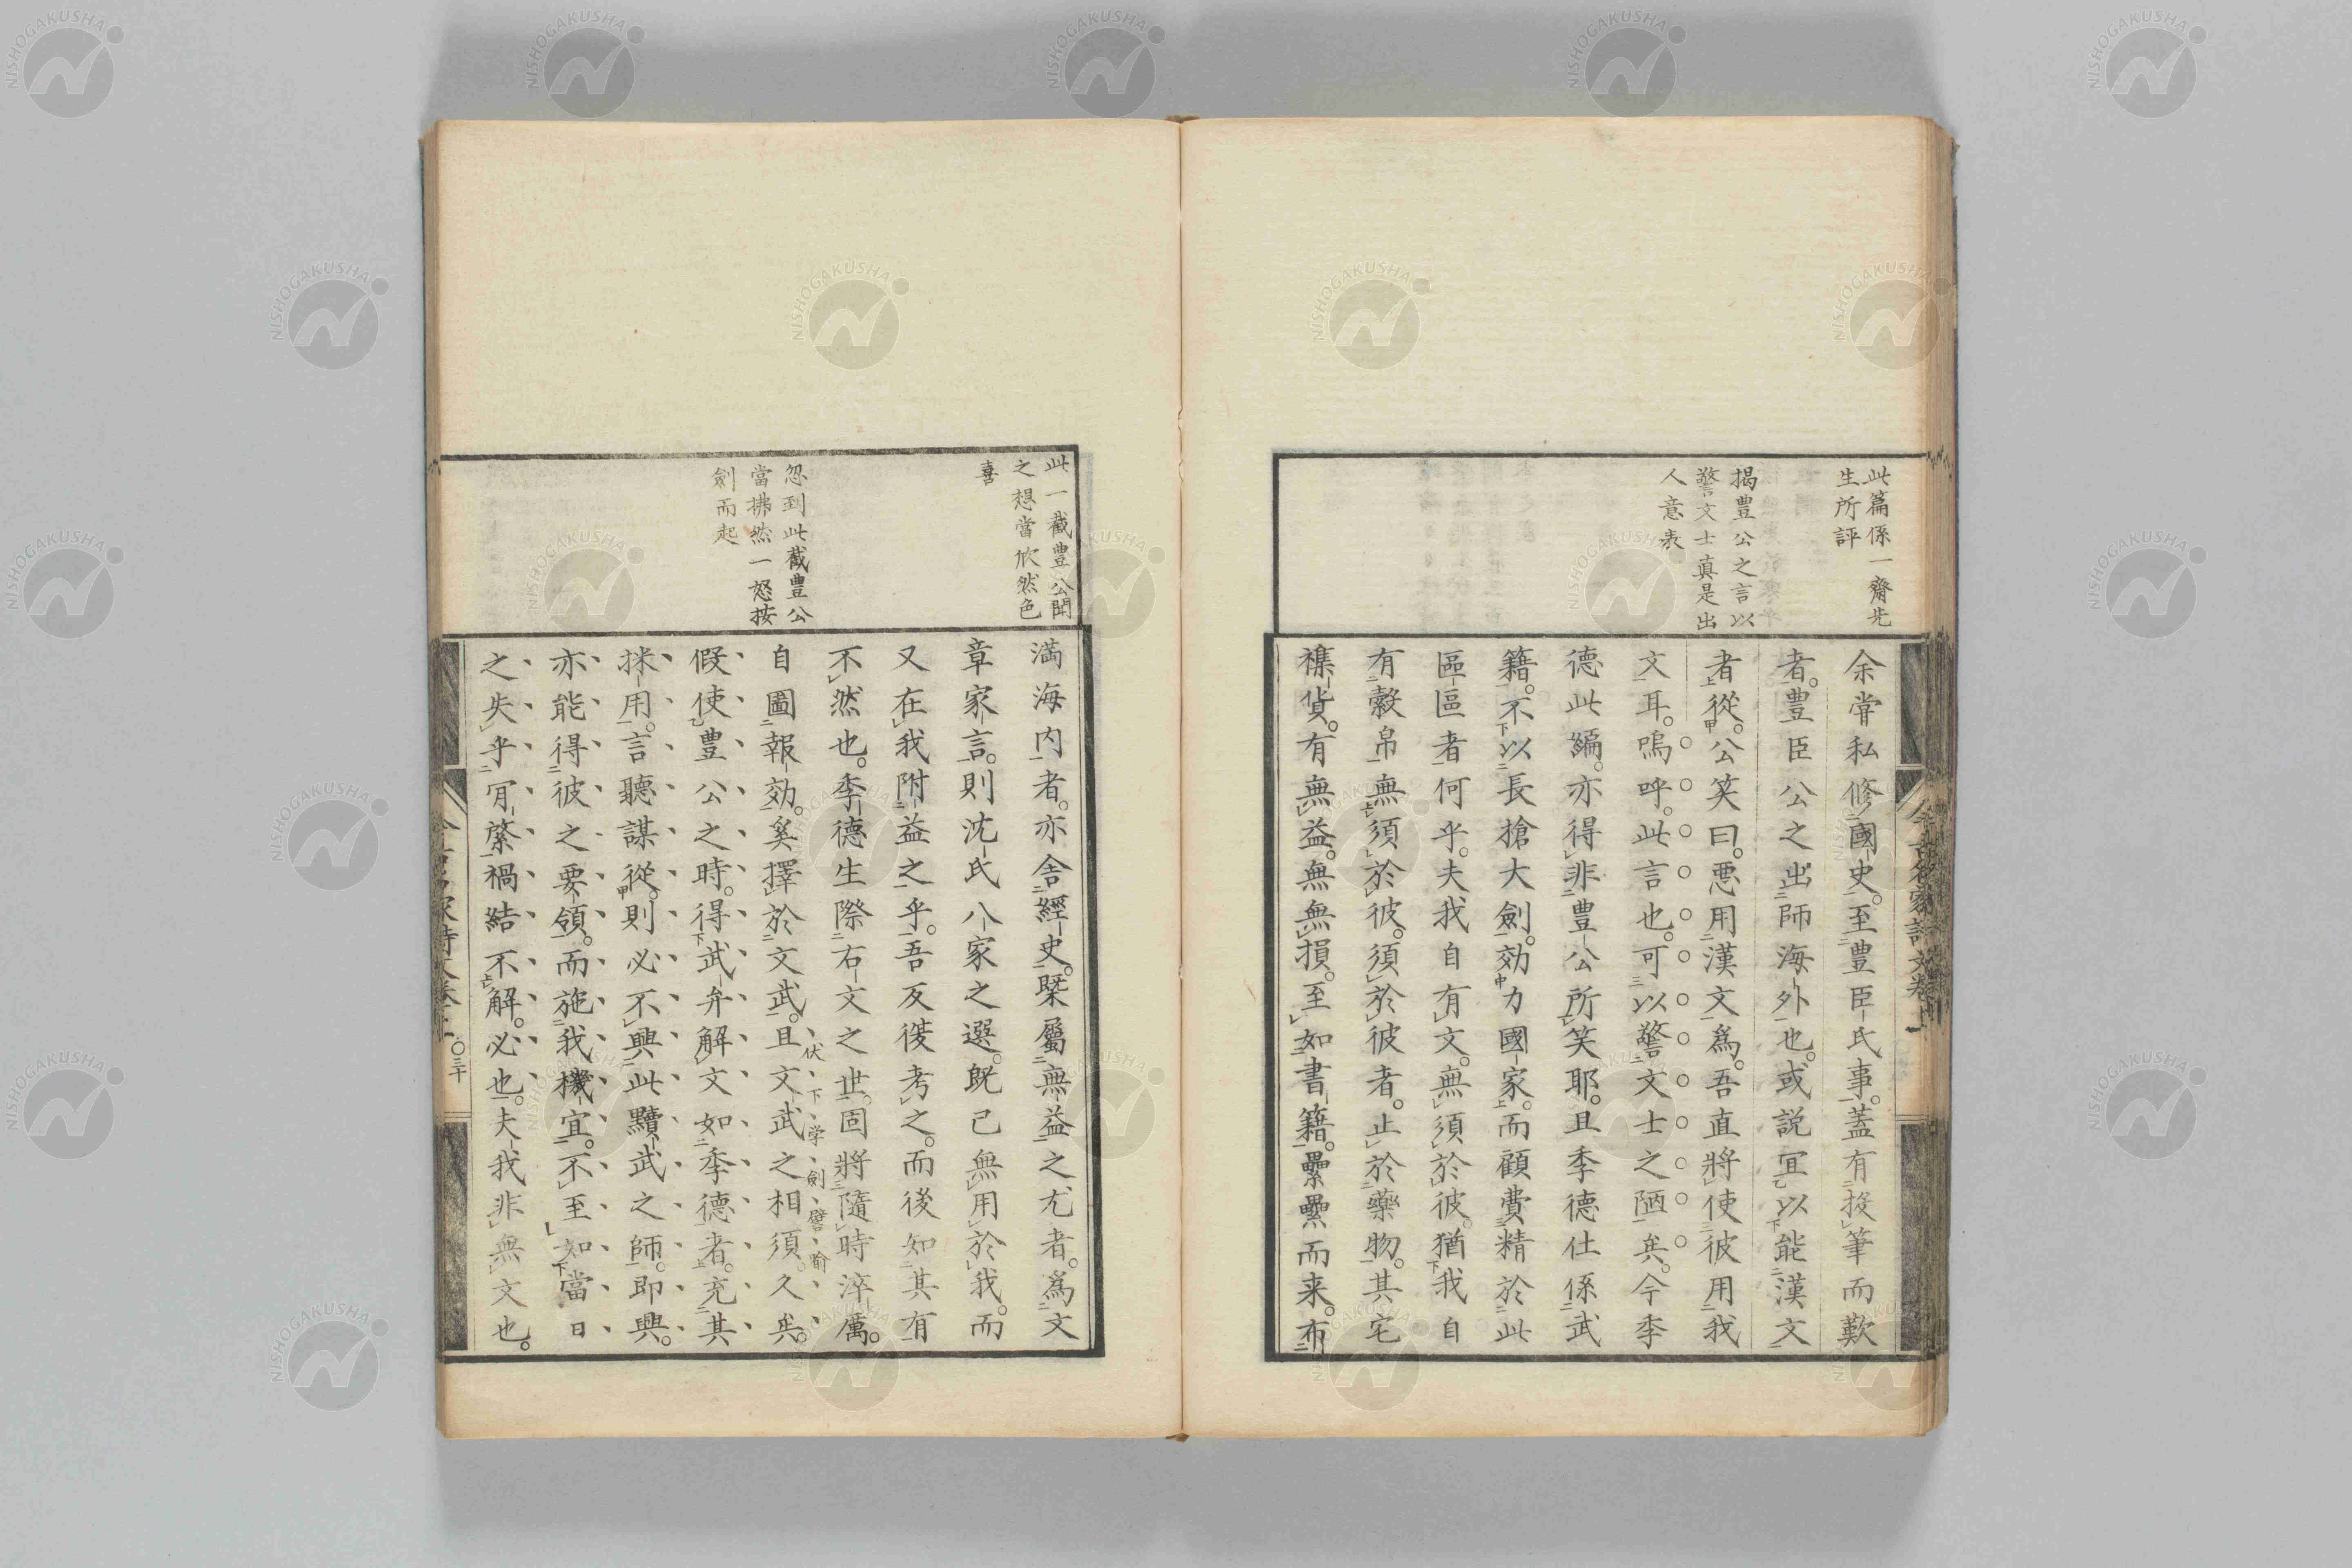 此篇係一齋先
生所評
揭豊公之言以
警文士眞是出
人意表
余甞私修國史。至豊臣氏事。蓋有投筆而歎
者。豊臣公之出師海外也。或説冝以能漢文
者從。公笑曰。悪用漢文爲。吾直將使彼用我
文耳。嗚呼。此言也。可以警文士之陋矣。今季
德此編。亦得非豊公所笑耶。且季德仕係武
籍。不以長搶大劍。効力國家。而顧費精於此
區區者何乎。夫我自有文。無須於彼。猶我自
有穀帛無須於彼。須於彼者。止於藥物。其宅
襍貨。有無益。無無損。至如書籍。纍纍而来。布
此一截豊公聞
之想當欣然色
喜
忽到此截豊公
當拂然一怒按
劍而起
満海内者。亦舍經史。槩屬無益之尤者。爲文
章家言。則沈氏八家之選。既已無用於我。而
又在我附益之乎。吾反復考之。而後如其有
不然也。季德生際右文之世。固將隨時淬厲。
自圖報効。奚擇於文武。且文武之相須久矣。
伏下学劍譬喻
假使豊公之時。得武弁解文如季德者。充其
採用。言聽謀從。則必不興此黷武之師。即興。
亦能得彼之要領。而施我機宜。不至如當日
之失乎冝。綮禍結不解。必也。夫我非無文也。
今古名家詩文卷一
〇三十